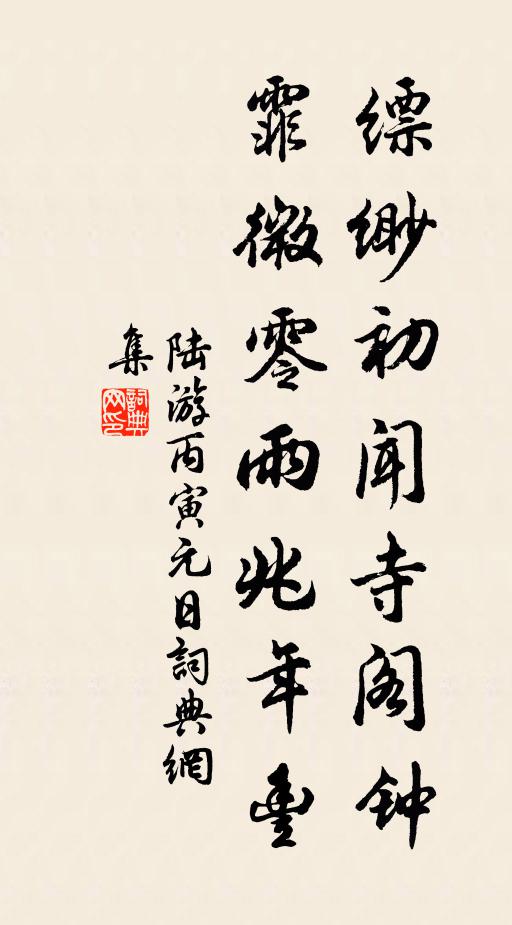 缥缈初闻寺阁钟
霏微零雨兆年豊
陆游丙寅元日詞典網
集
詞典
网印